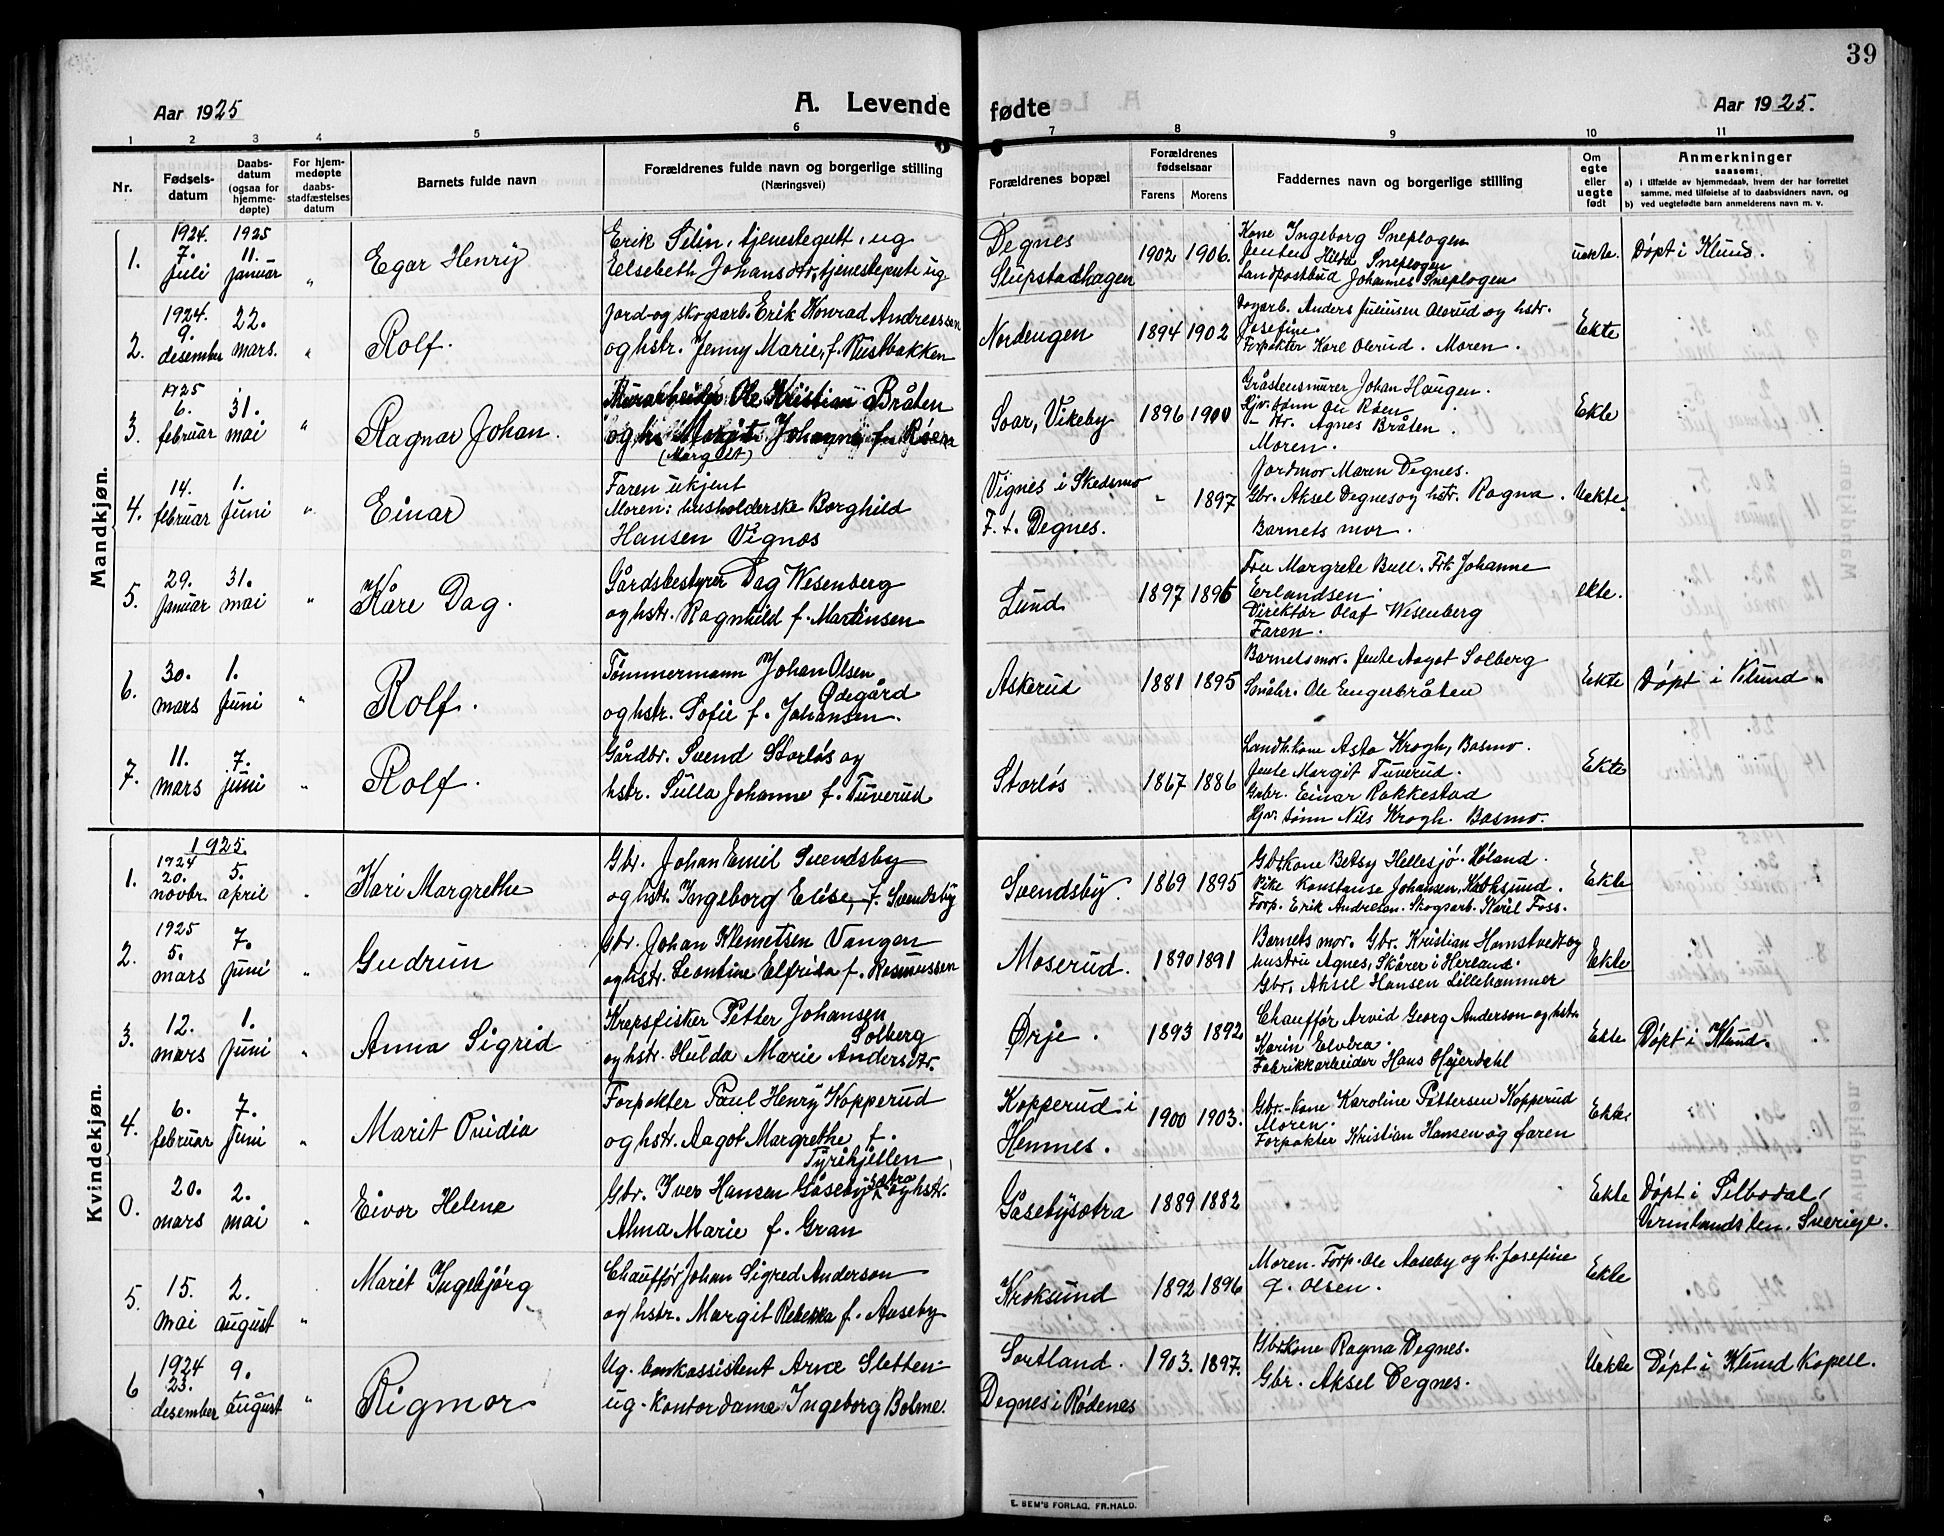 39
Aar 1925
A. Levende
fødte
Aar 1925.
1 2 3 4 5 6 7 8 9 10 11
Nr.
Fødsels-
datum
Daabs-
datum
(ogsaa for
hjemme-
døpte)
For hjem-
medøpte
daabs-
stadfæstelses
datum
Barnets fulde navn
Forældrenes fulde navn og borgerlige stilling
(Næringsvei)
Forældrenes bopæl
Forældrenes
fødselsaar
Farens Morens
Faddernes navn og borgerlige stilling
Om
egte
eller
uegte
født
Anmerkninger
saasom:
a) i tilfælde av hjemmedaab, hvem der har forrettet
samme, med tilføielse af to daabsvidners navn, og
b) ved uegtefødte barn anmelderens navn m. v.
Mandkjøn.
1.
1924.
7.
juli
1925
11.
januar
"
Egar Henry
Erik Selin, tjenestegutt, ug
Elsebeth Johansdtr, tjenestepike ug
Degnes
Slupstadhagen
1902 1906.
Kone Ingeborg Sneplogen
Jenten Hilda Sneplogen
Landpostbud Johannes Sneplogen
uekte.
Døpt i Klund.
2.
1924.
9.
desember
22.
mars.
"
Rolf.
Jord- og skogsarb. Erik Konrad Andreassen
og hstr. Jenny Marie, f. Rustbakken
Nordengen
1894 1902
Anders Juliussen Olerud og hstr.
Josefine.
Forpakter Karl Olerud. Moren.
Ekte
3.
1925
6.
februar
31.
mai
"
Ragnar Johan.
Murarbeider Ole Kristian Bråten
og h. Margit Johanne f. Røen
(Margit)
Soar, Vikeby
1896 1900
Gråstensmurer Johan Haugen.
Hjv. sønn Ole Røen
D- tr. Agnes Bråten.
Moren.
Ekte
4.
14.
februar
1.
Juni
"
Einar
Faren ukjent
Moren: husholderske Borghild
Hansen Vignes
Vignes i Skedsmo
F. t. Degnes.
" 1897
Jordmor Maren Degnes.
Gbr. Aksel Degnes og hstr. Ragna.
Barnets mor.
Uekte.
5.
29.
Januar
31.
mai
"
Kåre Dag.
Gårdsbestyrer Dag Wesenberg
og hstr. Ragnhild f. Martinsen
Lund
1897 1896
Fru Margrete Bull. Frk Johanne
Erlandsen.
Direktør Olaf Wesenberg
Faren.
ekte.
6.
30.
mars
1.
Juni
"
Rolf.
Tømmermann Johan Olsen
Ødegård
og hstr. Sofie f. Johansen.
Askerud
1881 1895
Barnets mor. Jente Aagot Solberg
Småbr. Ole Engerbråten
Ekte
Døpt i Klund "
7.
11.
mars
7.
juni
"
Rolf.
Gårdbr. Svend Storløs og
hstr. Sulla Johanne f. Tuverud
Storløs
1867 1886
Landh. kone Asta Krogh, Basmo.
Jente Margit Tuverud.
Gabr. Einar Rakkestad
Hjv. sønn Nils Krogh. Basmo.
Ekte
Kvindekjøn.
1925.
1.
1924
20.
novbr.
5.
april
"
Kari Margrethe
Gbr. Johan Emil Svendsby
og hstr. Ingeborg Elise, f. Svendsby
Svendsby.
1869 1895
Gbrkone Betsy Hellesjø. Høland.
Pike Konstanse Johansen, Kroksund.
Forp. Erik Andresen. Skogsarb. Karil Foss.
Ekte
2.
1925
5.
mars
7.
Juni
"
Gudrun
Gbr. Johan Klemetsen Vangen
og hstr. Leontine Elfrida f. Rasmussen
Moserud.
1890 1891
Barnets mor. Gbr. Kristian Hamstvedt og
hustru Agnes, Skårer i Herland.
Gbr. Aksel Hansen Lillehammer
Ekte
3.
12.
mars
1.
Juni
"
Anna Sigrid
Krepsfisker Petter Johansen
Solberg
og hstr. Hulda Marie Andersdtr.
Ørje.
1893 1892
Chauffør Arvid Georg Anderson og hstr.
Karin Elvira.
Fabrikkarbeider Hans Heyerdahl
Ekte
Døpt i Klund.
4.
6.
februar
7.
Juni
"
Marit Ovidia
Forpakter Paul Henry Kopperud
og hstr. Aagot Margrethe f.
Tyrihjellen
Kopperud i
Hemnes.
1900 1903.
Gbr.-kone Karoline Pettersen Kopperud
Moren.
Forpakter Kristian Hansen og faren
Ekte.
0.
20.
mars
2.
mai
"
Eivor Helene
Gbr. Iver Hansen Gåsebysøtra og hstr.
Alma Marie f. Gran
Gåsebysøtra
1889 1882
Ekte
Døpt i Silbodal,
Vermlands len. Sverige.
5.
15.
mai
2.
august
"
Marit Ingebjørg
Chauffør Johan Sigred Anderson
og hstr. Margit Rebekka f. Aaseby
Kroksund
1892 1896
Moren. Forp. Ole Aaseby og h. Josefine
f. Olsen.
Ekte
6
1924
23.
desember
9.
august
"
Rigmor
Ug. bankassistent Arne Sletten-
ug. Kontordame Ingeborg Bolme.
Sortland.
Degnes i Rødenes
1903. 1897.
Gbrkone Ragna Degnes.
Gbr. Aksel Degnes.
Uekte
Døpt i Klund Kapell.
E. SEM'S FORLAG, FR.HALD.